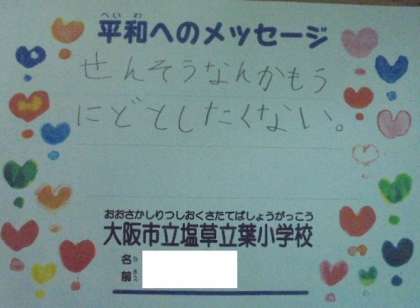 へいわ
平和へのメッセージ
せんそうなんかもう
にどとしたくない。
おおさかしりつしおくさたてばしょうがっこう
大阪市立塩草立葉小学校
な まえ
名前